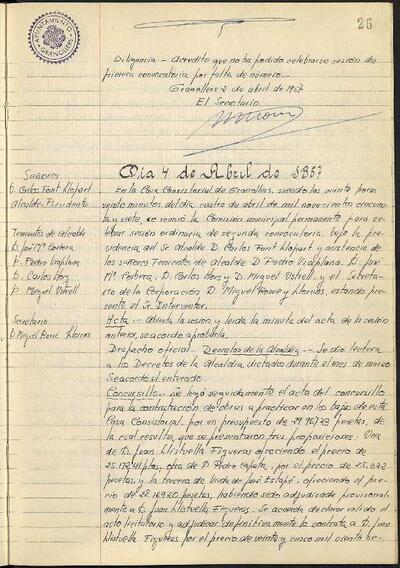 26
AYUNTAMIENTO
GRANOLLERS
Diligencia.- Acredito que no ha podido celebrarse sesión de
primera convocatoria por falta de número.-
Granollers 2 de abril de 1957
El Secretario
Día 4 de Abril de 1957
Señores
D. Carlos Font Llopart
Alcalde-Presidente
Tenientes de Alcalde
D. José Mª Corbera
D. Pedro Viaplana
D. Carlos Hors
D. Miguel Ustrell
Secretario
D. Miguel Roure Llorens
En la Casa Consistorial de Granollers, siendo las veinte horas
veinte minutos del día cuatro de abril de mil novecientos cincuen-
ta y siete, se reunió la Comisión municipal permanente para ce-
lebrar sesión ordinaria de segunda convocatoria, bajo la pre-
sidencia del Sr. Alcalde D. Carlos Font Llopart y asistencia de
los señores Tenientes de Alcalde D. Pedro Viaplana, D. José
Mª Corbera, D. Carlos Hors y D. Miguel Ustrell, y el Secreta-
rio de la Corporación D. Miguel Roure y Llorens, estando pre-
sente el Sr. Interventor.
Acta.- Abierta la sesión y leída la minuta del acta de la sesión
anterior, se acordo aprobarla.
Despacho oficial. Decretos de la Alcaldía.- Se dió lectura
a los Decretos de la Alcaldía dictados durante el mes de marzo
Se acordó el enterado.
Concursillo.- Se leyó seguidamente el acta del concursillo
para la contratación de obras a practicar en los bajos de esta
Casa Consistorial, por en presupuesto de 29.967'23 pesetas, de
la cual resulta que se presentaron tres proposiciones: Una
de D. Juan Llistuella Figueras ofreciendo el precio de
ptas, otra de D. Pedro Zapata, por el precio de
pesetas, y la tercera de Vda de José Estapé, ofreciendo el pre-
cio de pesetas, habiendo sido adjudicada provisional-
mente a D. Juan Llistuella Figueras. Se acuerda declarar válido el
acto licitatorio y adjudicar definitivamente la contrata a D. Juan
Llistuella Figueras por el precio de veinte y cinco mil ciento se-